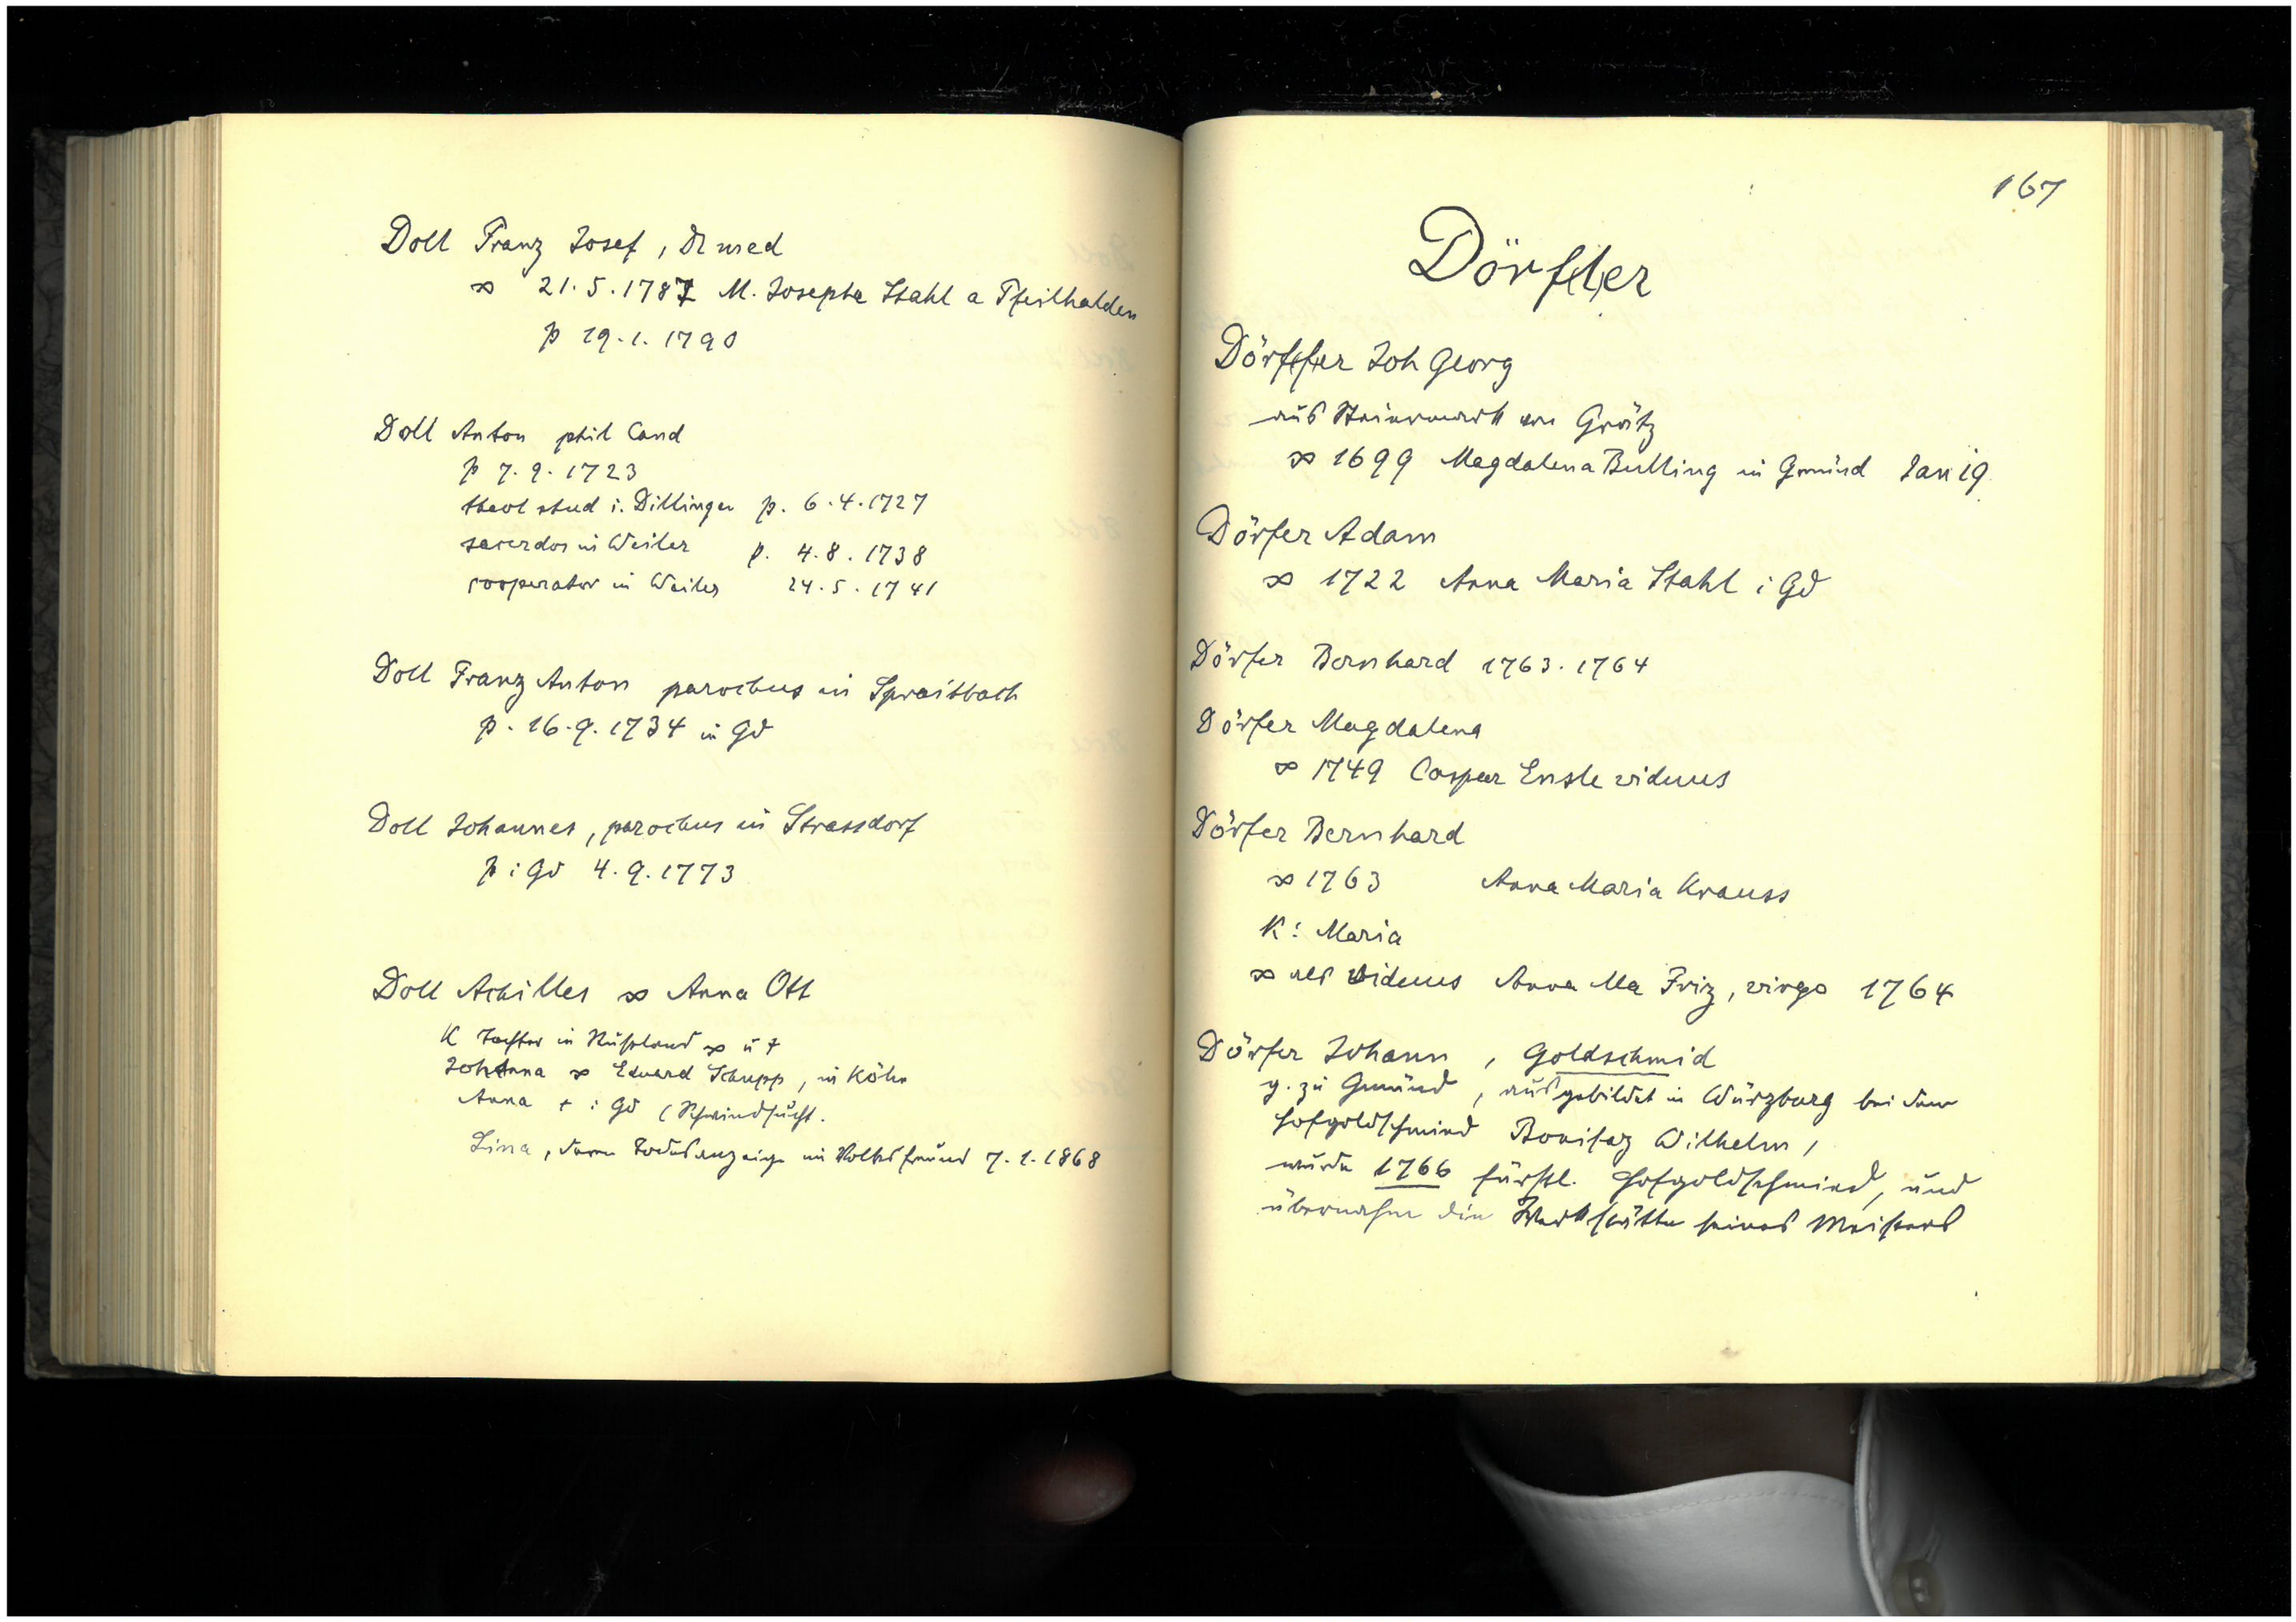 Doll Franz Josef, Dr med
∞ 21.5.1787 M. Josepha Stahl a Pfeilhalden
p 19.1.1790
Doll Anton phil Cand
p 7.9.1723
theol stud i. Dillingen p. 6.4.1727
sacerdos in Weiler p. 4.8.1738
cooperator in Weiler 24.5.1741
Doll Franz Anton parochus in Spraitbach
p. 16.9.1734 in Gd
Doll Johannes, parochus in Strassdorf
p i Gd 4.9.1773
Doll Achilles ∞ Anna Ott
K Tochter in Rußland ∞ u †
Johanna ∞ Eduard Schupp, in Köln
Anna † i Gd (Schwindsucht.
Lina, deren Todesanzeige im Volksfreund 7.1.1868
167
Dörf(l)er
Dörffer Joh Georg
aus Steiermark von Grätz
∞ 1699 Magdalena Bulling in Gmünd Jan 19
Dörfer Adam
∞ 1722 Anna Maria Stahl i Gd
Dörfer Bernhard 1763.1764
Dörfer Magdalena
∞ 1749 Caspar Ensle viduus
Dörfer Bernhard
∞ 1763 Anna Maria Krauss
K: Maria
∞ als viduus Anna Ma Friz, virgo 1764
Dörfer Johann, Goldschmid
g. zu Gmünd, ausgebildet in Würzburg bei dem
Hofgoldschmied Bonifaz Wilhelm,
wurde 1766 fürstl. Hofgoldschmied, und
übernahm die Werkstätte seines Meisters